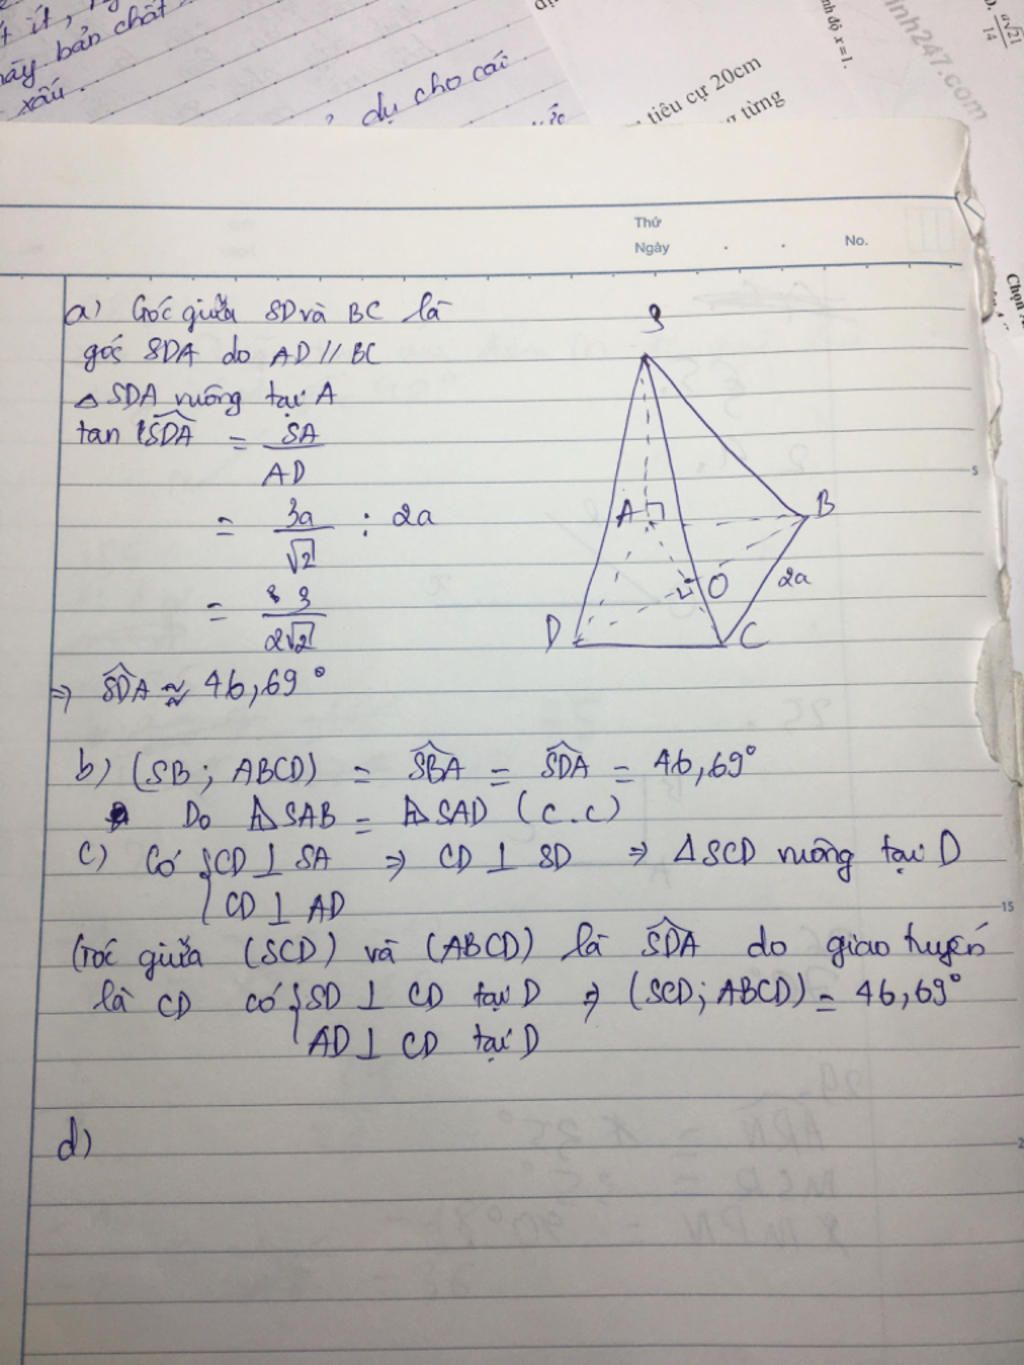 bản chất
xấu.
dụ cho cái
tiêu cự 20cm
từng
nh độ x=1.
inh247.com
a√21
14
Chọn
Thứ
Ngày . . No.
a) Góc giữa SD và BC là
góc SDA do AD // BC
△ SDA vuông tại A
tan SDA = SA
AD
= 3a : 2a
√2
= 3
2√2
⇒ SDA ≈ 46,69°
S
A
B
O
2a
D
C
5
b) (SB ; ABCD) = SBA = SDA = 46,69°
Do △SAB = △SAD (c.c)
c) Có { CD ⊥ SA ⇒ CD ⊥ SD ⇒ △SCD vuông tại D
CD ⊥ AD
15
Góc giữa (SCD) và (ABCD) là SDA do giao tuyến
là CD có { SD ⊥ CD tại D ⇒ (SCD; ABCD) = 46,69°
AD ⊥ CD tại D
d)